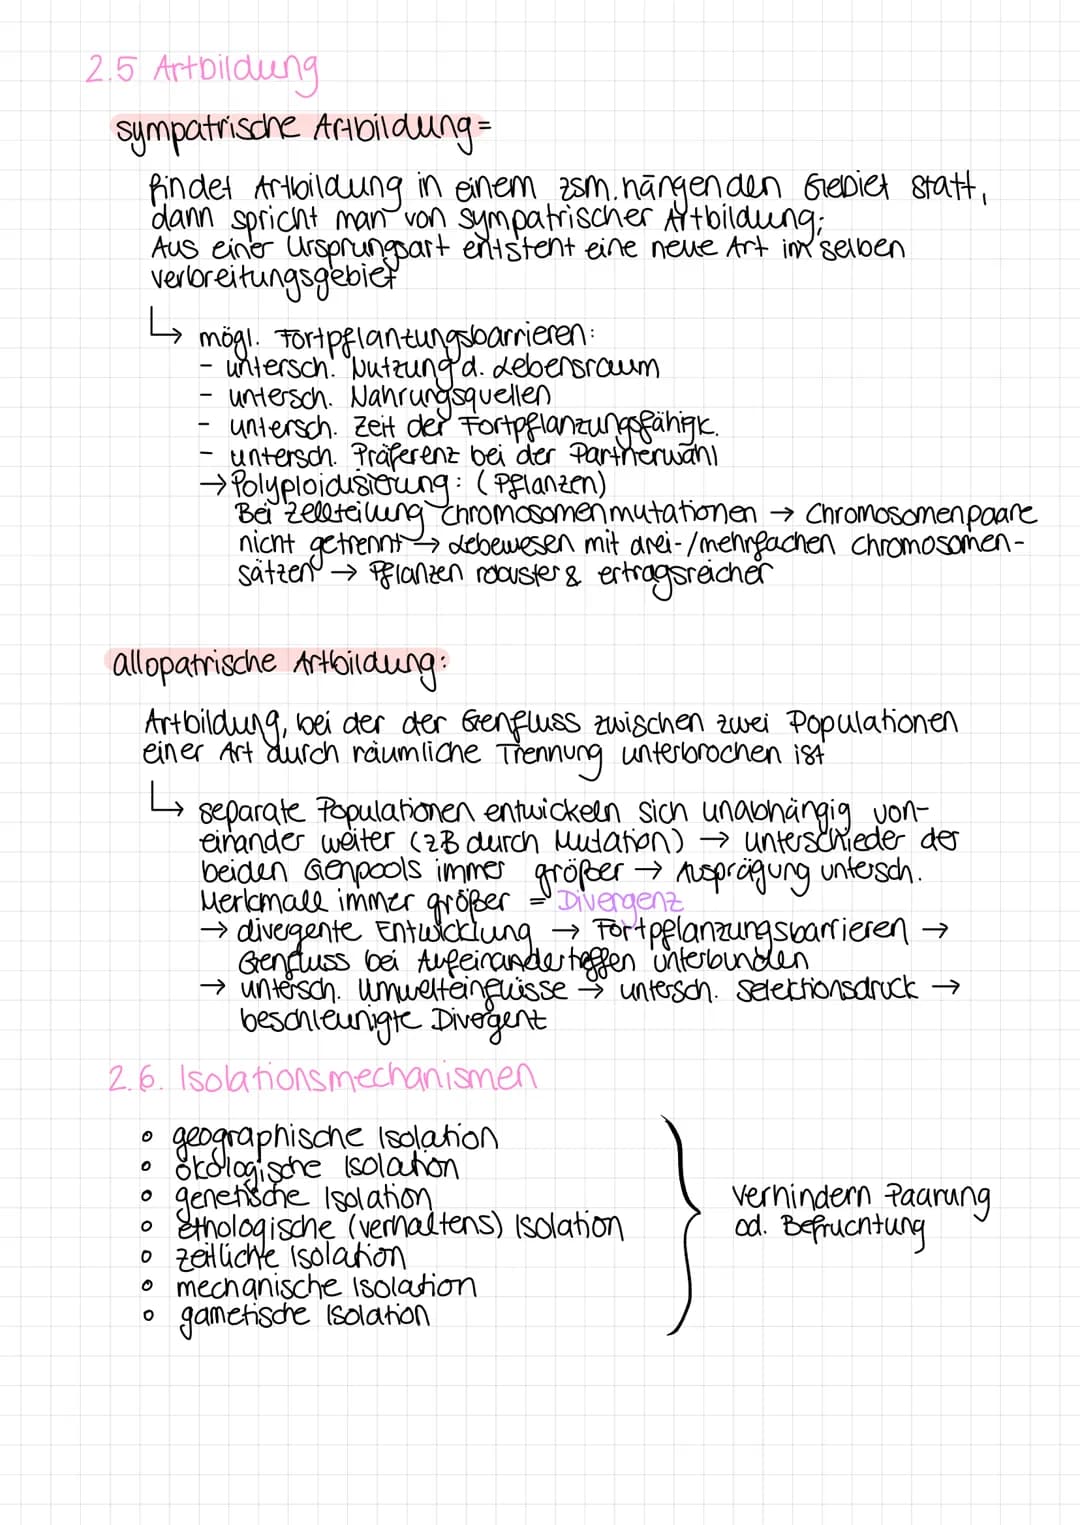 2.5 Artbildung
sympatrische Artbildung=
findet Artbildung in einem zsm.hängenden Gebiet statt,
dann spricht man von sympatrischer Artbildung;
Aus einer Ursprungsart entsteht eine neue Art im selben
verbreitungsgebiet
↳ mögl. Fortpflantungsbarrieren:
- untersch. Nutzung d. Lebensraum
- untersch. Nahrungsquellen
- untersch. Zeit der Fortpflanzungsfähigk.
- untersch. Präferenz bei der Partnerwahl
→ Polyploidisierung: (Pflanzen)
Bei Zellteilung Chromosomenmutationen → Chromosomenpaare
nicht getrennt → Lebewesen mit drei-/mehrfachen Chromosomen-
sätzen → Pflanzen robuster & ertragsreicher
allopatrische Artbildung:
Artbildung, bei der der Genfluss zwischen zwei Populationen
einer Art durch räumliche Trennung unterbrochen ist
↳ separate Populationen entwickeln sich unabhängig von-
einander weiter (zB durch Mutation) → unterschieder der
beiden Genpools immer größer → Ausprägung untersch.
Merkmale immer größer = Divergenz
→ divergente Entwicklung → Fortpflanzungsbarrieren →
Genfluss bei Aufeinandertreffen unterbunden
→ untersch. Umwelteinflüsse → untersch. Selektionsdruck →
beschleunigte Divergent
2.6. Isolationsmechanismen
◦ geographische Isolation
◦ ökologische Isolation
◦ genetische Isolation
◦ ethologische (verhaltens) Isolation
◦ zeitliche Isolation
◦ mechanische Isolation
◦ gametische Isolation
verhindern Paarung
od. Befruchtung